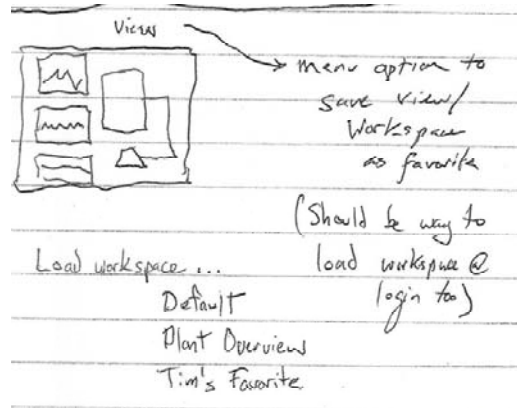 View
menu option to
save view/
Workspace
as favorite
(Should be way to
load workspace @
login too)
Load workspace...
Default
Plant Overview
Tim's Favorite